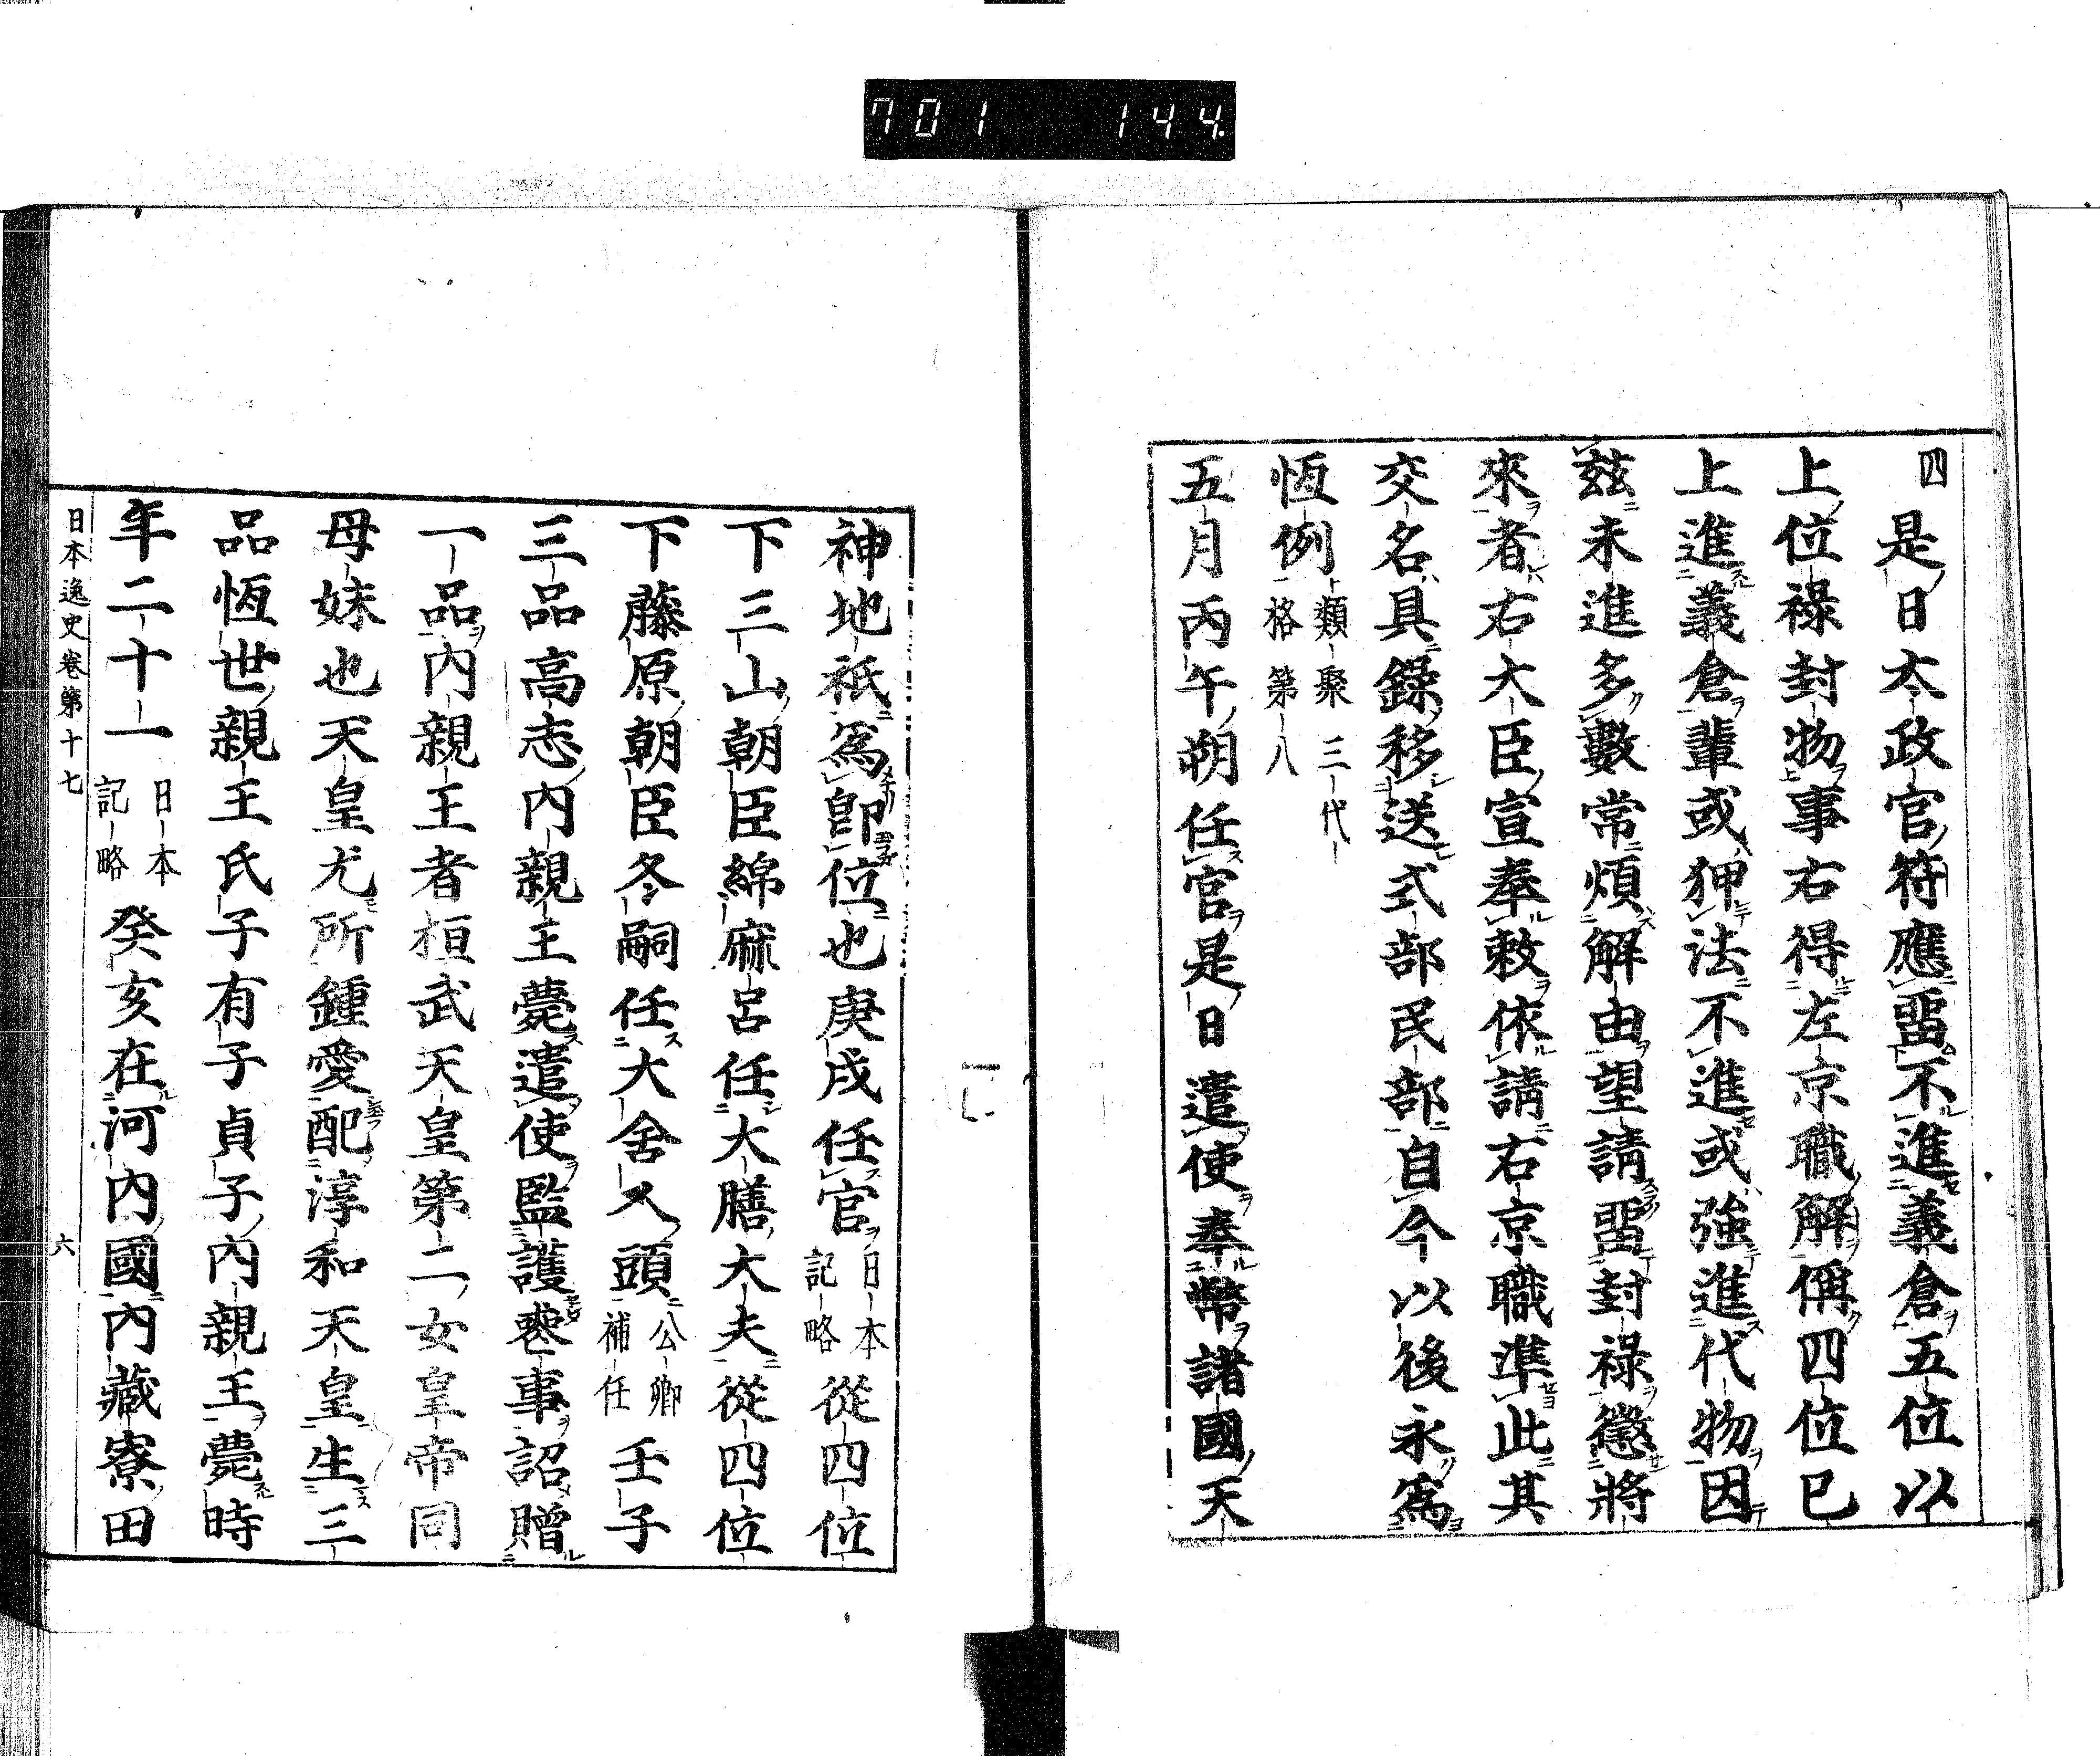 701 144
四
是日太政官符應畱不進義倉五位以
上位祿封物事右得左京職解偁四位已
上進義倉輩或狎法不進或強進代物因
玆未進多數常煩解由望請畱封祿懲將
來者右大臣宣奉敕依請右京職準此其
交名具錄移送式部民部自今以後永爲
恆例類聚三代
格第八
五月丙午朔任官是日遣使奉幣諸國天
神地祇爲卽位也庚戌任官日本
記略從四位
下三山朝臣綿麻呂任大膳大夫從四位
下藤原朝臣冬嗣任大舍人頭公卿
補任壬子
三品高志內親王薨遣使監護喪事詔贈
一品內親王者桓武天皇第二女皇帝同
母妹也天皇尤所鍾愛配淳和天皇生三
品恆世親王氏子有子貞子內親王薨時
年二十一日本
記略癸亥在河內國內藏寮田
日本逸史卷第十七 六